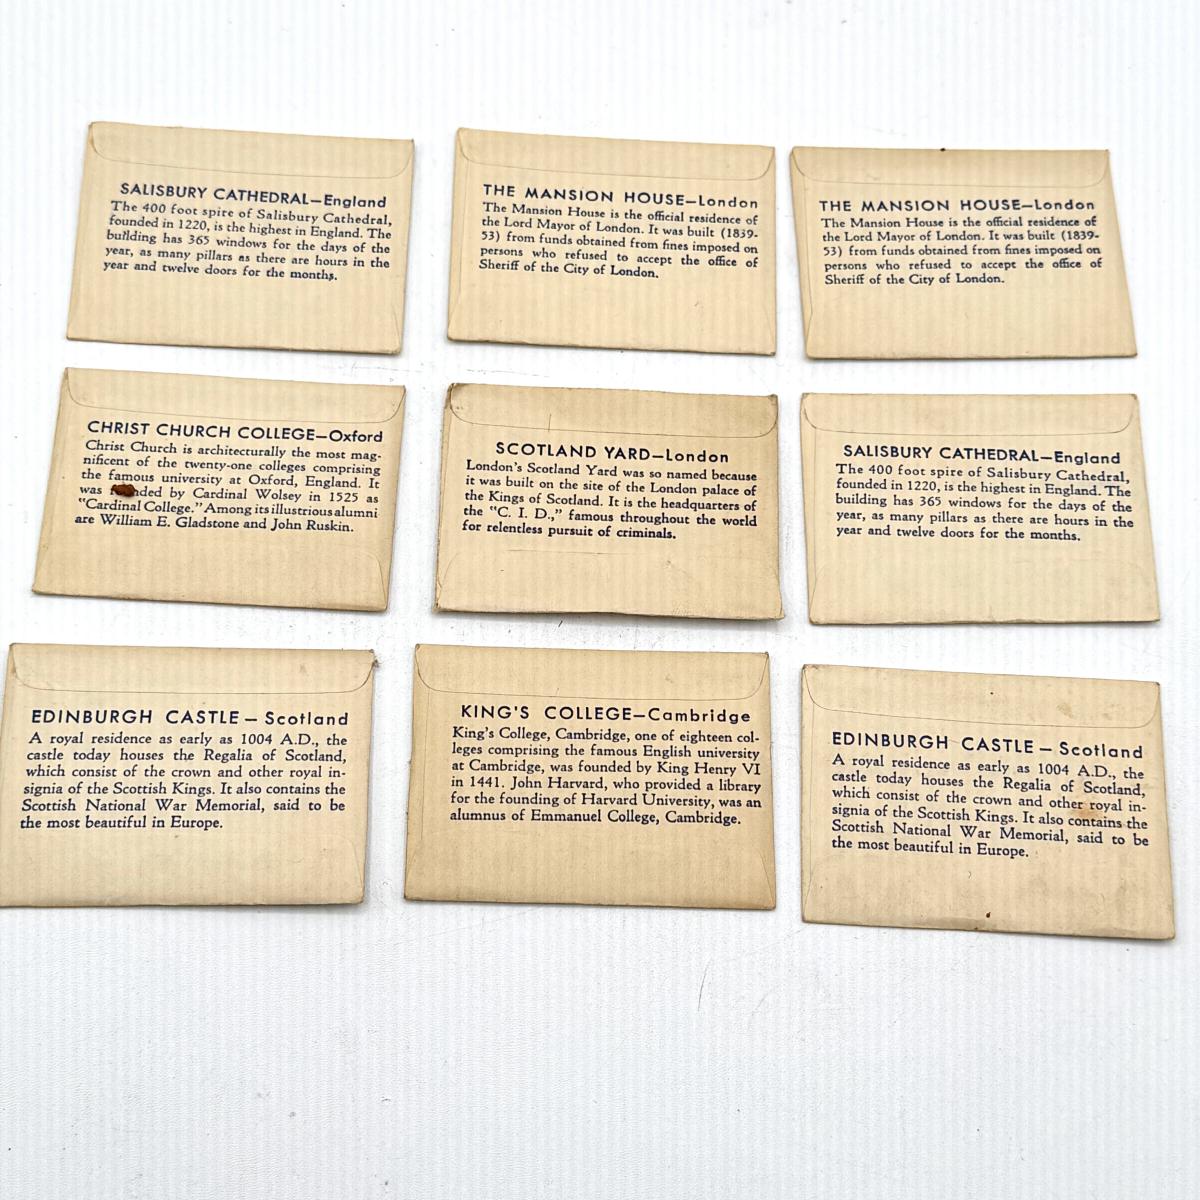 SALISBURY CATHEDRAL—England
The 400 foot spire of Salisbury Cathedral,
founded in 1220, is the highest in England. The
building has 365 windows for the days of the
year, as many pillars as there are hours in the
year and twelve doors for the months.
THE MANSION HOUSE—London
The Mansion House is the official residence of
the Lord Mayor of London. It was built (1839-
53) from funds obtained from fines imposed on
persons who refused to accept the office of
Sheriff of the City of London.
THE MANSION HOUSE—London
The Mansion House is the official residence of
the Lord Mayor of London. It was built (1839-
53) from funds obtained from fines imposed on
persons who refused to accept the office of
Sheriff of the City of London.
CHRIST CHURCH COLLEGE—Oxford
Christ Church is architecturally the most mag-
nificent of the twenty-one colleges comprising
the famous university at Oxford, England. It
was by Cardinal Wolsey in 1525 as
"Cardinal College." Among its illustrious alumni
are William E. Gladstone and John Ruskin.
SCOTLAND YARD—London
London's Scotland Yard was so named because
it was built on the site of the London palace of
the Kings of Scotland. It is the headquarters of
the "C. I. D.," famous throughout the world
for relentless pursuit of criminals.
SALISBURY CATHEDRAL—England
The 400 foot spire of Salisbury Cathedral,
founded in 1220, is the highest in England. The
building has 365 windows for the days of the
year, as many pillars as there are hours in the
year and twelve doors for the months.
EDINBURGH CASTLE — Scotland
A royal residence as early as 1004 A.D., the
castle today houses the Regalia of Scotland,
which consist of the crown and other royal in-
signia of the Scottish Kings. It also contains the
Scottish National War Memorial, said to be
the most beautiful in Europe.
KING'S COLLEGE—Cambridge
King's College, Cambridge, one of eighteen col-
leges comprising the famous English university
at Cambridge, was founded by King Henry VI
in 1441. John Harvard, who provided a library
for the founding of Harvard University, was an
alumnus of Emmanuel College, Cambridge.
EDINBURGH CASTLE — Scotland
A royal residence as early as 1004 A.D., the
castle today houses the Regalia of Scotland,
which consist of the crown and other royal in-
signia of the Scottish Kings. It also contains the
Scottish National War Memorial, said to be
the most beautiful in Europe.